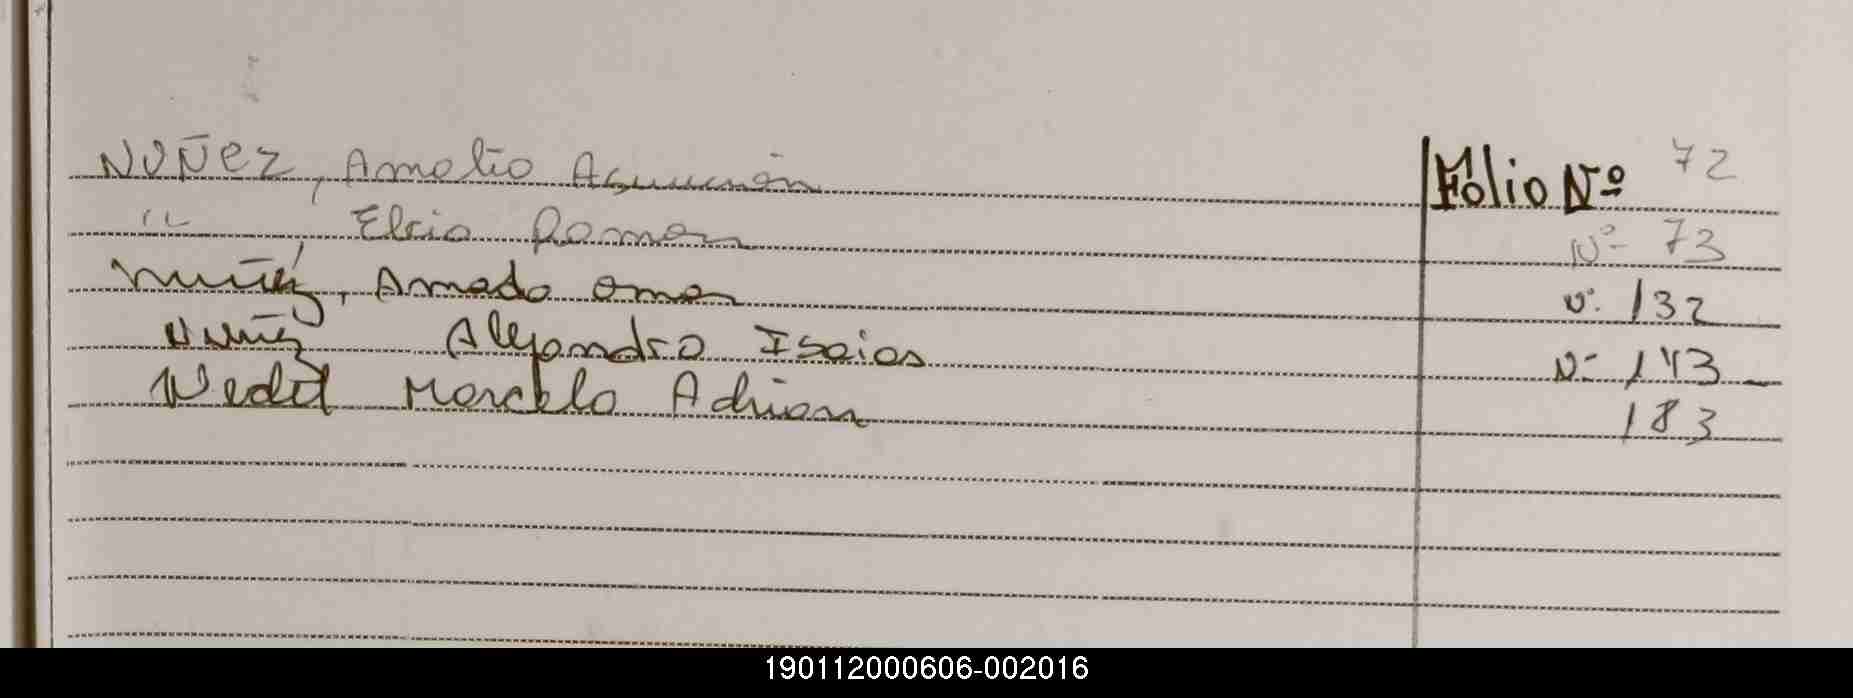 NUÑez, Amalio Asuncion Fólio Nº 72
" Elcio Ramon Nº 73
Nuñez, Amado Omar Nº 132
Nuñez Alejandro Isaias Nº 143
Marcelo Adrian 183
190112000606-002016